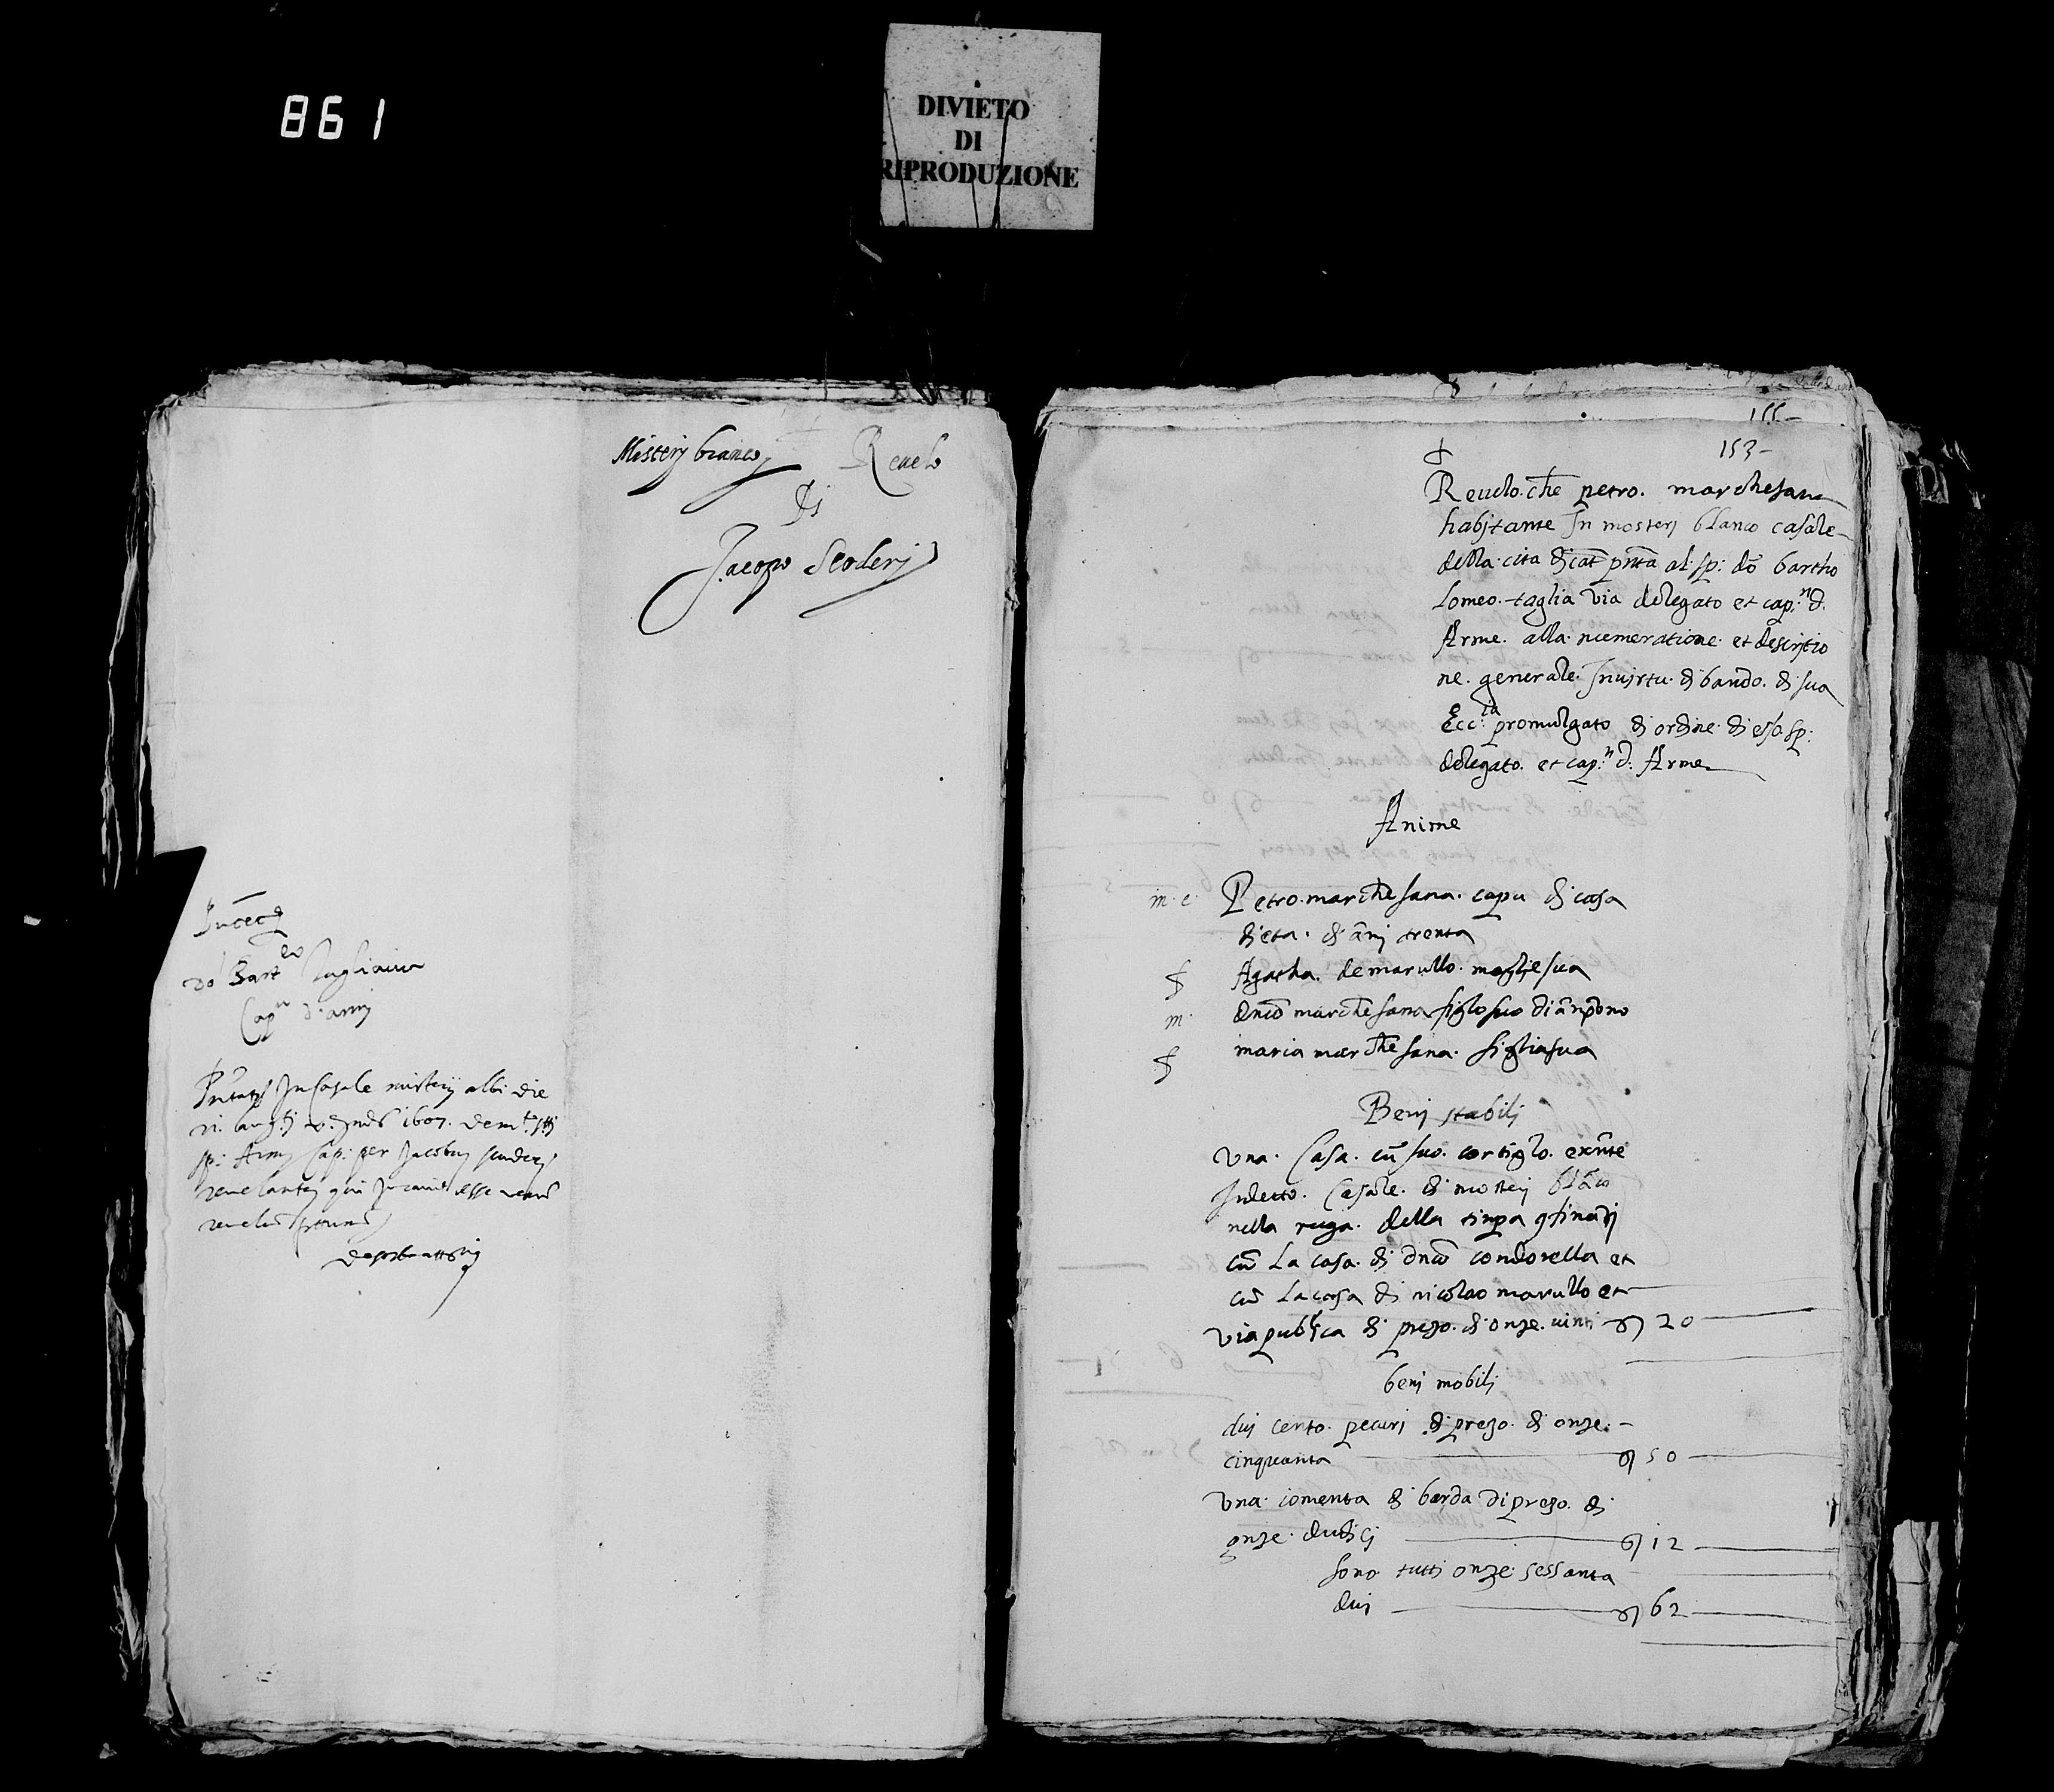 861
DIVIETO
DI
RIPRODUZIONE
Misterij bianco Revelo
di
Jacopo Scoderi
do Bart.eo Tagliavia
Cap.n d'armi
In Casale misterij albi die
1607
sp: Arm: Cap: per Jacobum
revelantem qui Juravit esse verum
revelum
155
153
Revelo. che petro. marchesana
habitante In mosterj blanco casale
della cita di cat pnta al sp: do bartho
lomeo. taglia via delegato et cap.n d.
Arme. alla numeratione et descritio
ne. generale. In virtu. di bando. di sua
Ecc.ia promulgato di ordine di esso sp:
delegato. et cap.n d. Arme
Anime
m. c. Petro. marchesana. capu di casa
di eta. di anni trenta
f Agatha. de marullo. moglie sua
m. dnico marchesana figlo suo di anno uno
f maria marchesana. figlia sua
Beni stabili
Una. Casa. cu suo. cortiglo. exnte
In detto. Casale. di mosterj blanco
nella ruga. della timpa confinanti
cu La casa. di dnico condorella et
cu La casa di nicolao marullo et
via publica di prezo. di onze. vinti 20
beni mobili
dui cento. pecuri di prezo. di onze.
cinquanta 50
Una iomenta di barda di prezo. di
onze. dudici 12
sono tutti onze sessanta
dui 62